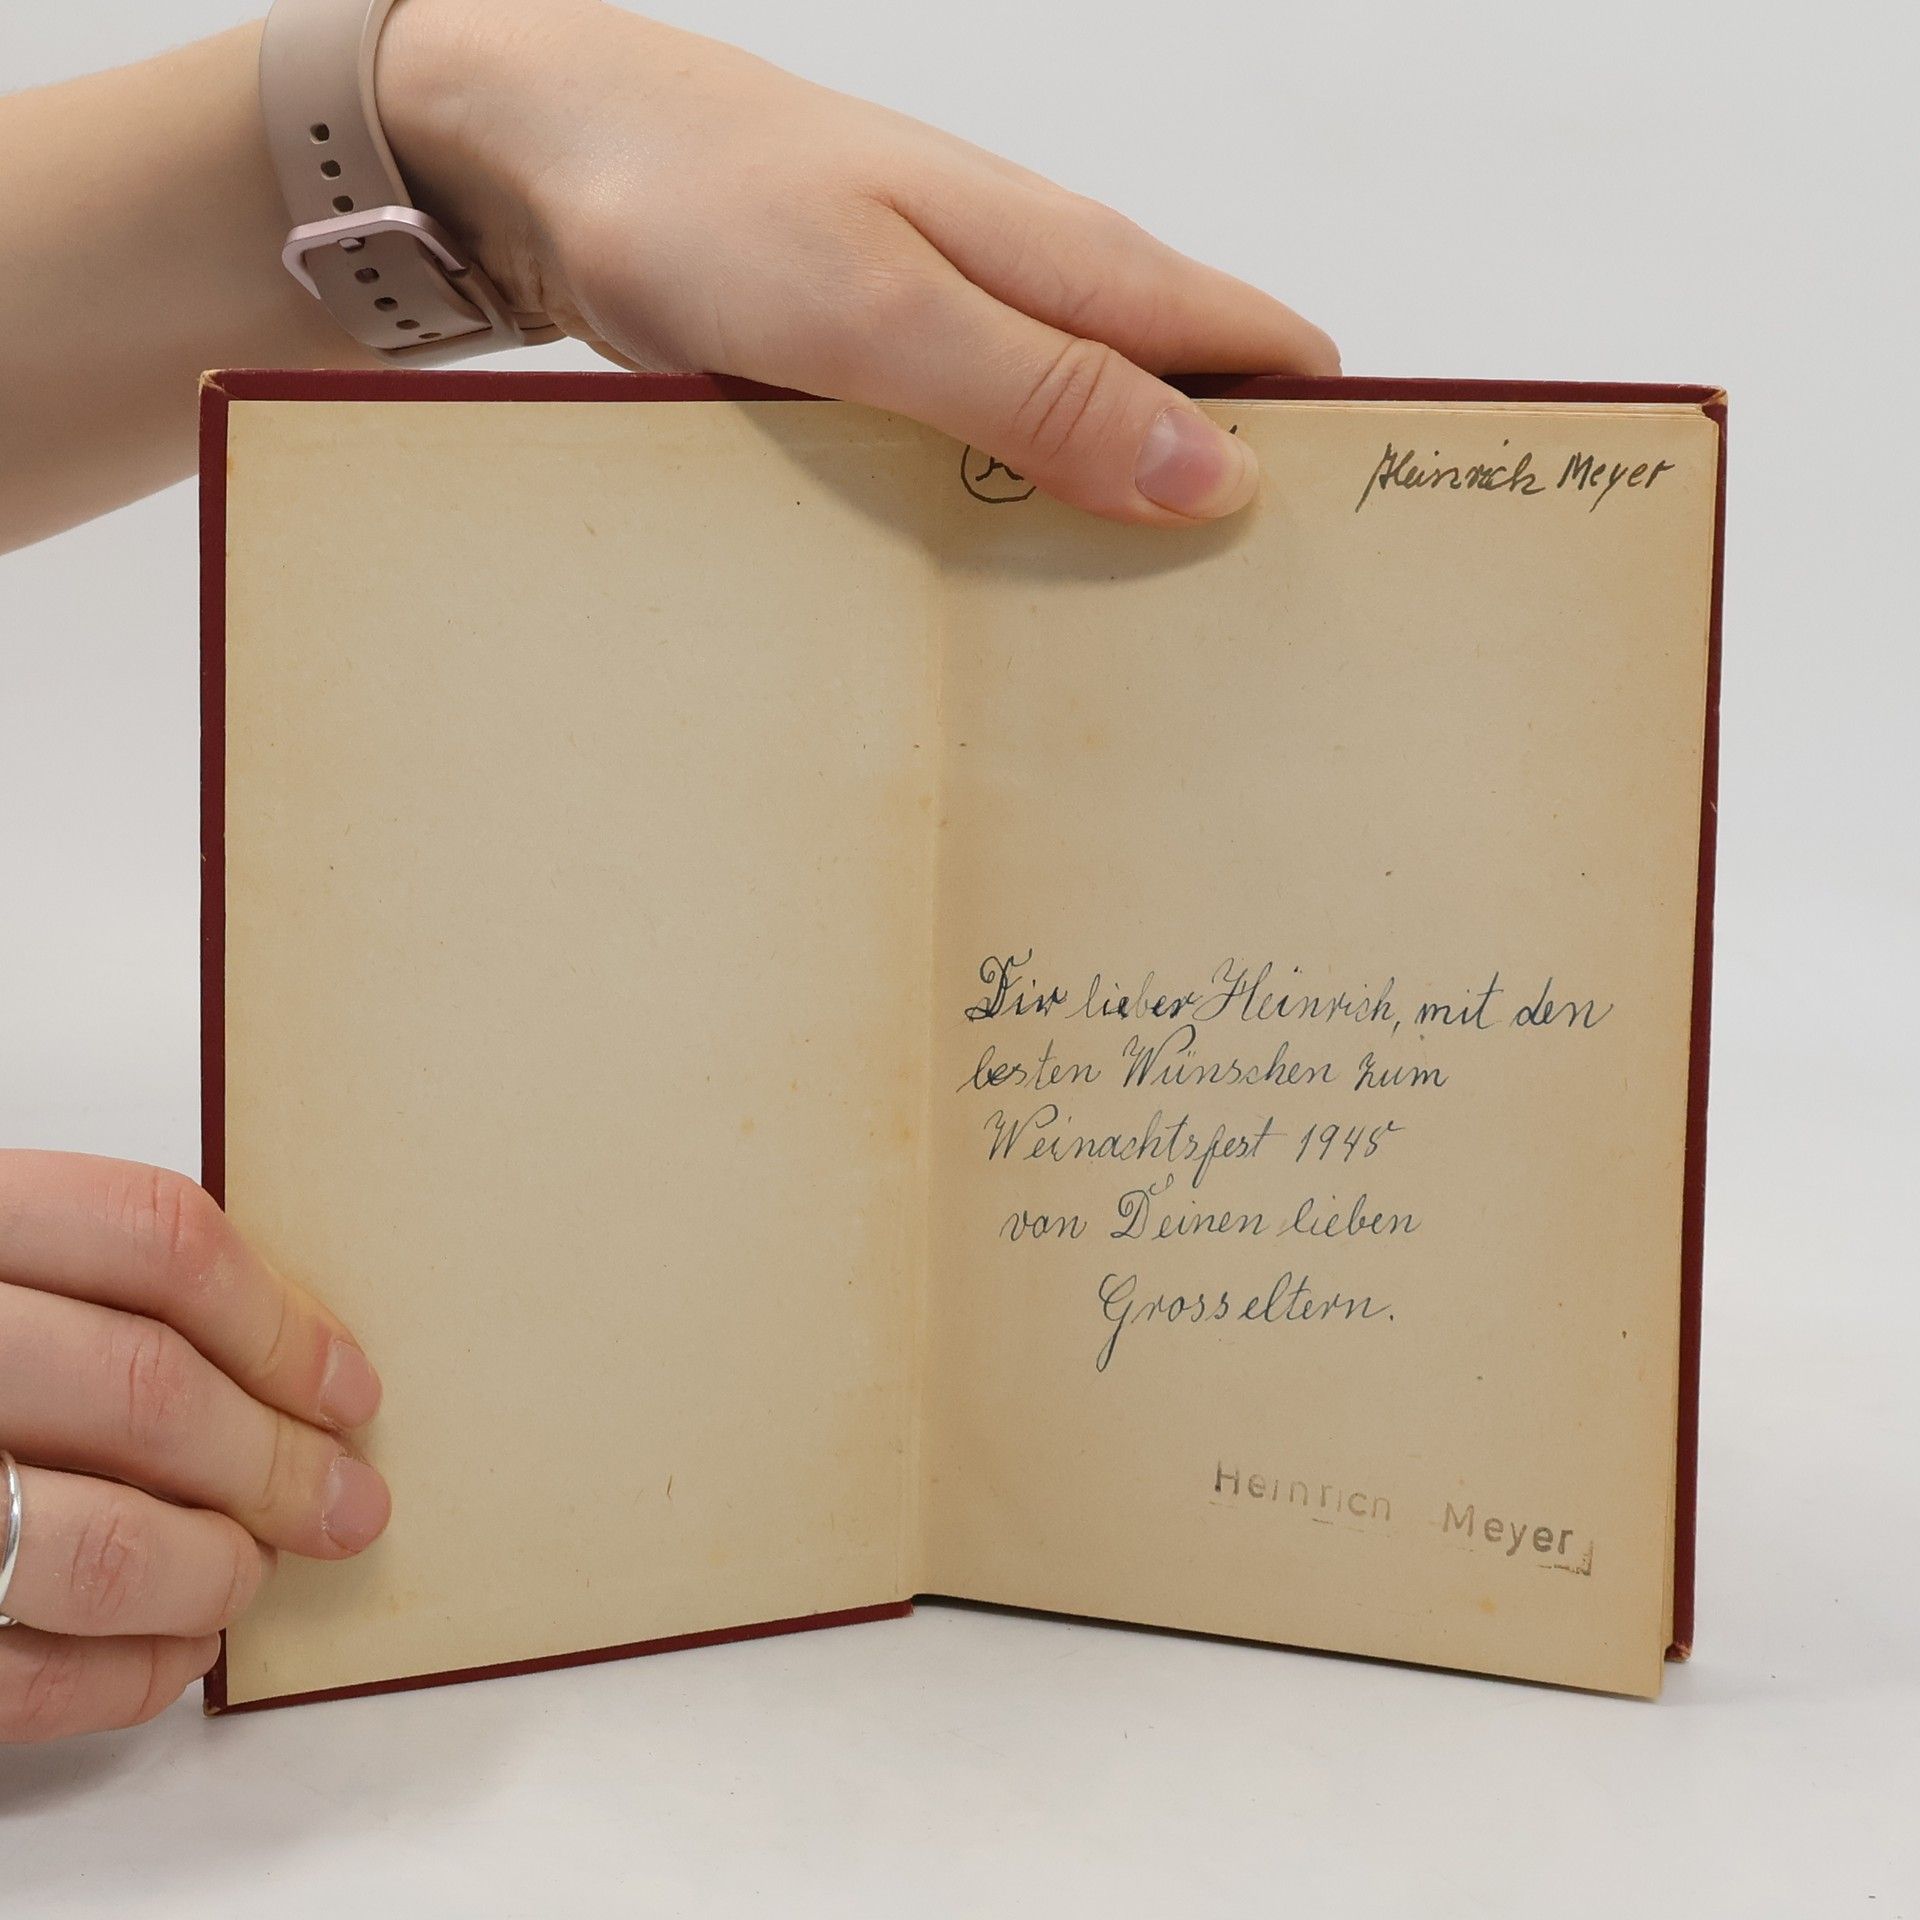 Heinrich Meyer
Dir lieber Heinrich, mit den
besten Wünschen zum
Weinachtsfest 1945
von Deinen lieben
Grosseltern.
Heinrich Meyer